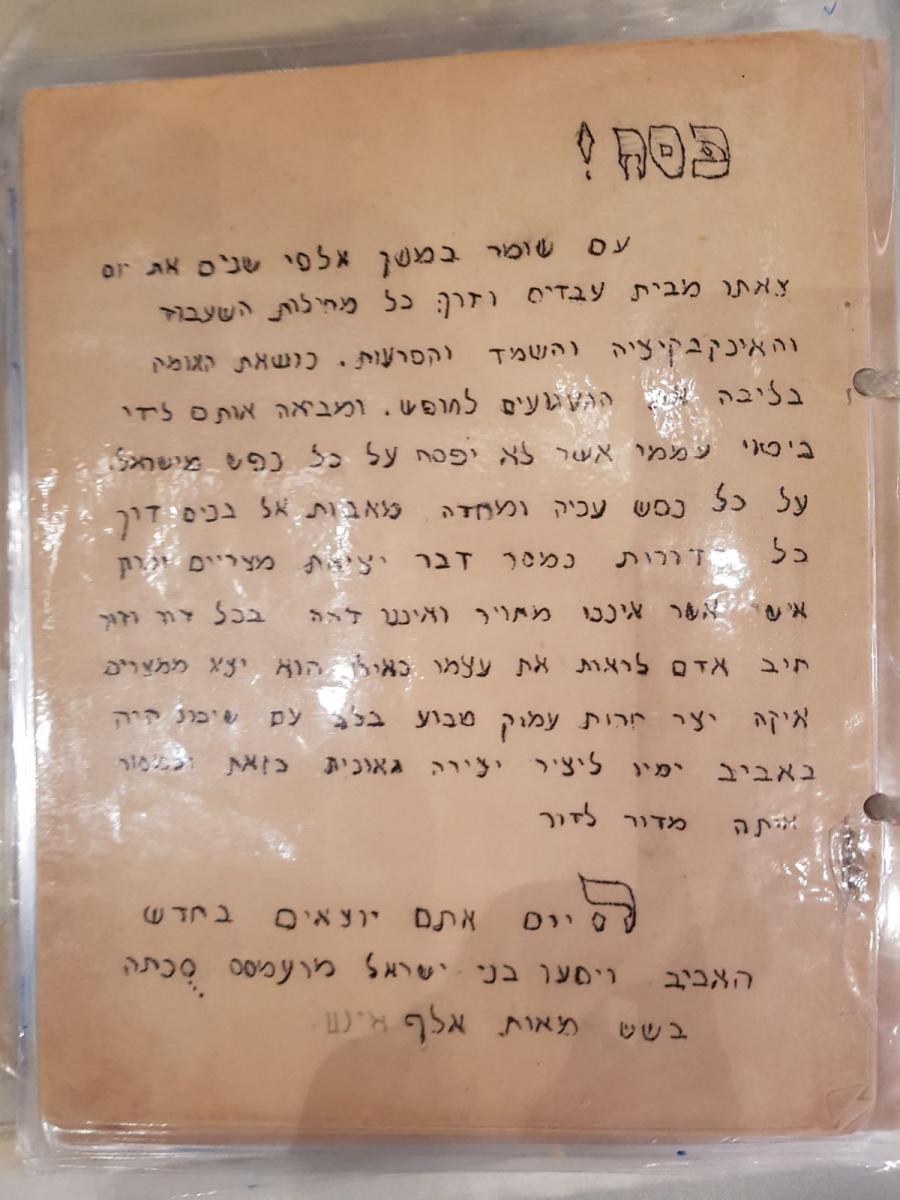 פסח !
עם שומר במשך אלפי שנים את יום
צאתו מבית עבדים ודרך כל מחילות השעבוד
והאינקבקיציה והשמד והפרעות. נושאת האומה
בליבה את הגעגועים לחופש. ומביאה אותם לידי
ביטוי עממי אשר לא יפסח על כל נפש מישראל.
על כל נפש עניה ומרודה מאבות אל בנים דרך
כל הדורות נמסר דבר יציאת מצריים
אישי אשר איננו מחויר ואיננו דהה בכל דור ודור
חיב אדם לראות את עצמו כאילו הוא יצא ממצרים
איזה יצר חרות עמוק טבוע בלב עם שיכול היה
באביב ימיו ליציר יצירה גאונית כזאת ולמסור
אותה מדור לדור
היום אתם יוצאים בחדש
האביב ויסעו בני ישראל מרעמסס סֻכתה
בשש מאות אלף איש